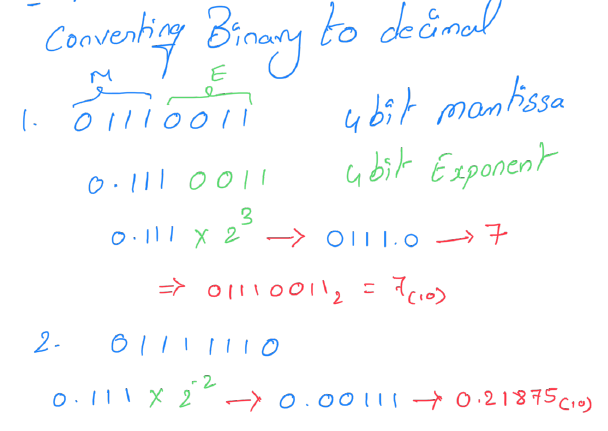 Converting Binary to decimal
M E
1. 01110011 4bit mantissa
0.111 0011 4bit Exponent
0.111 x 2³ → 0111.0 → 7
⇒ 01110011₂ = 7₍₁₀₎
2. 01111110
0.111 x 2⁻² → 0.00111 → 0.21875₍₁₀₎